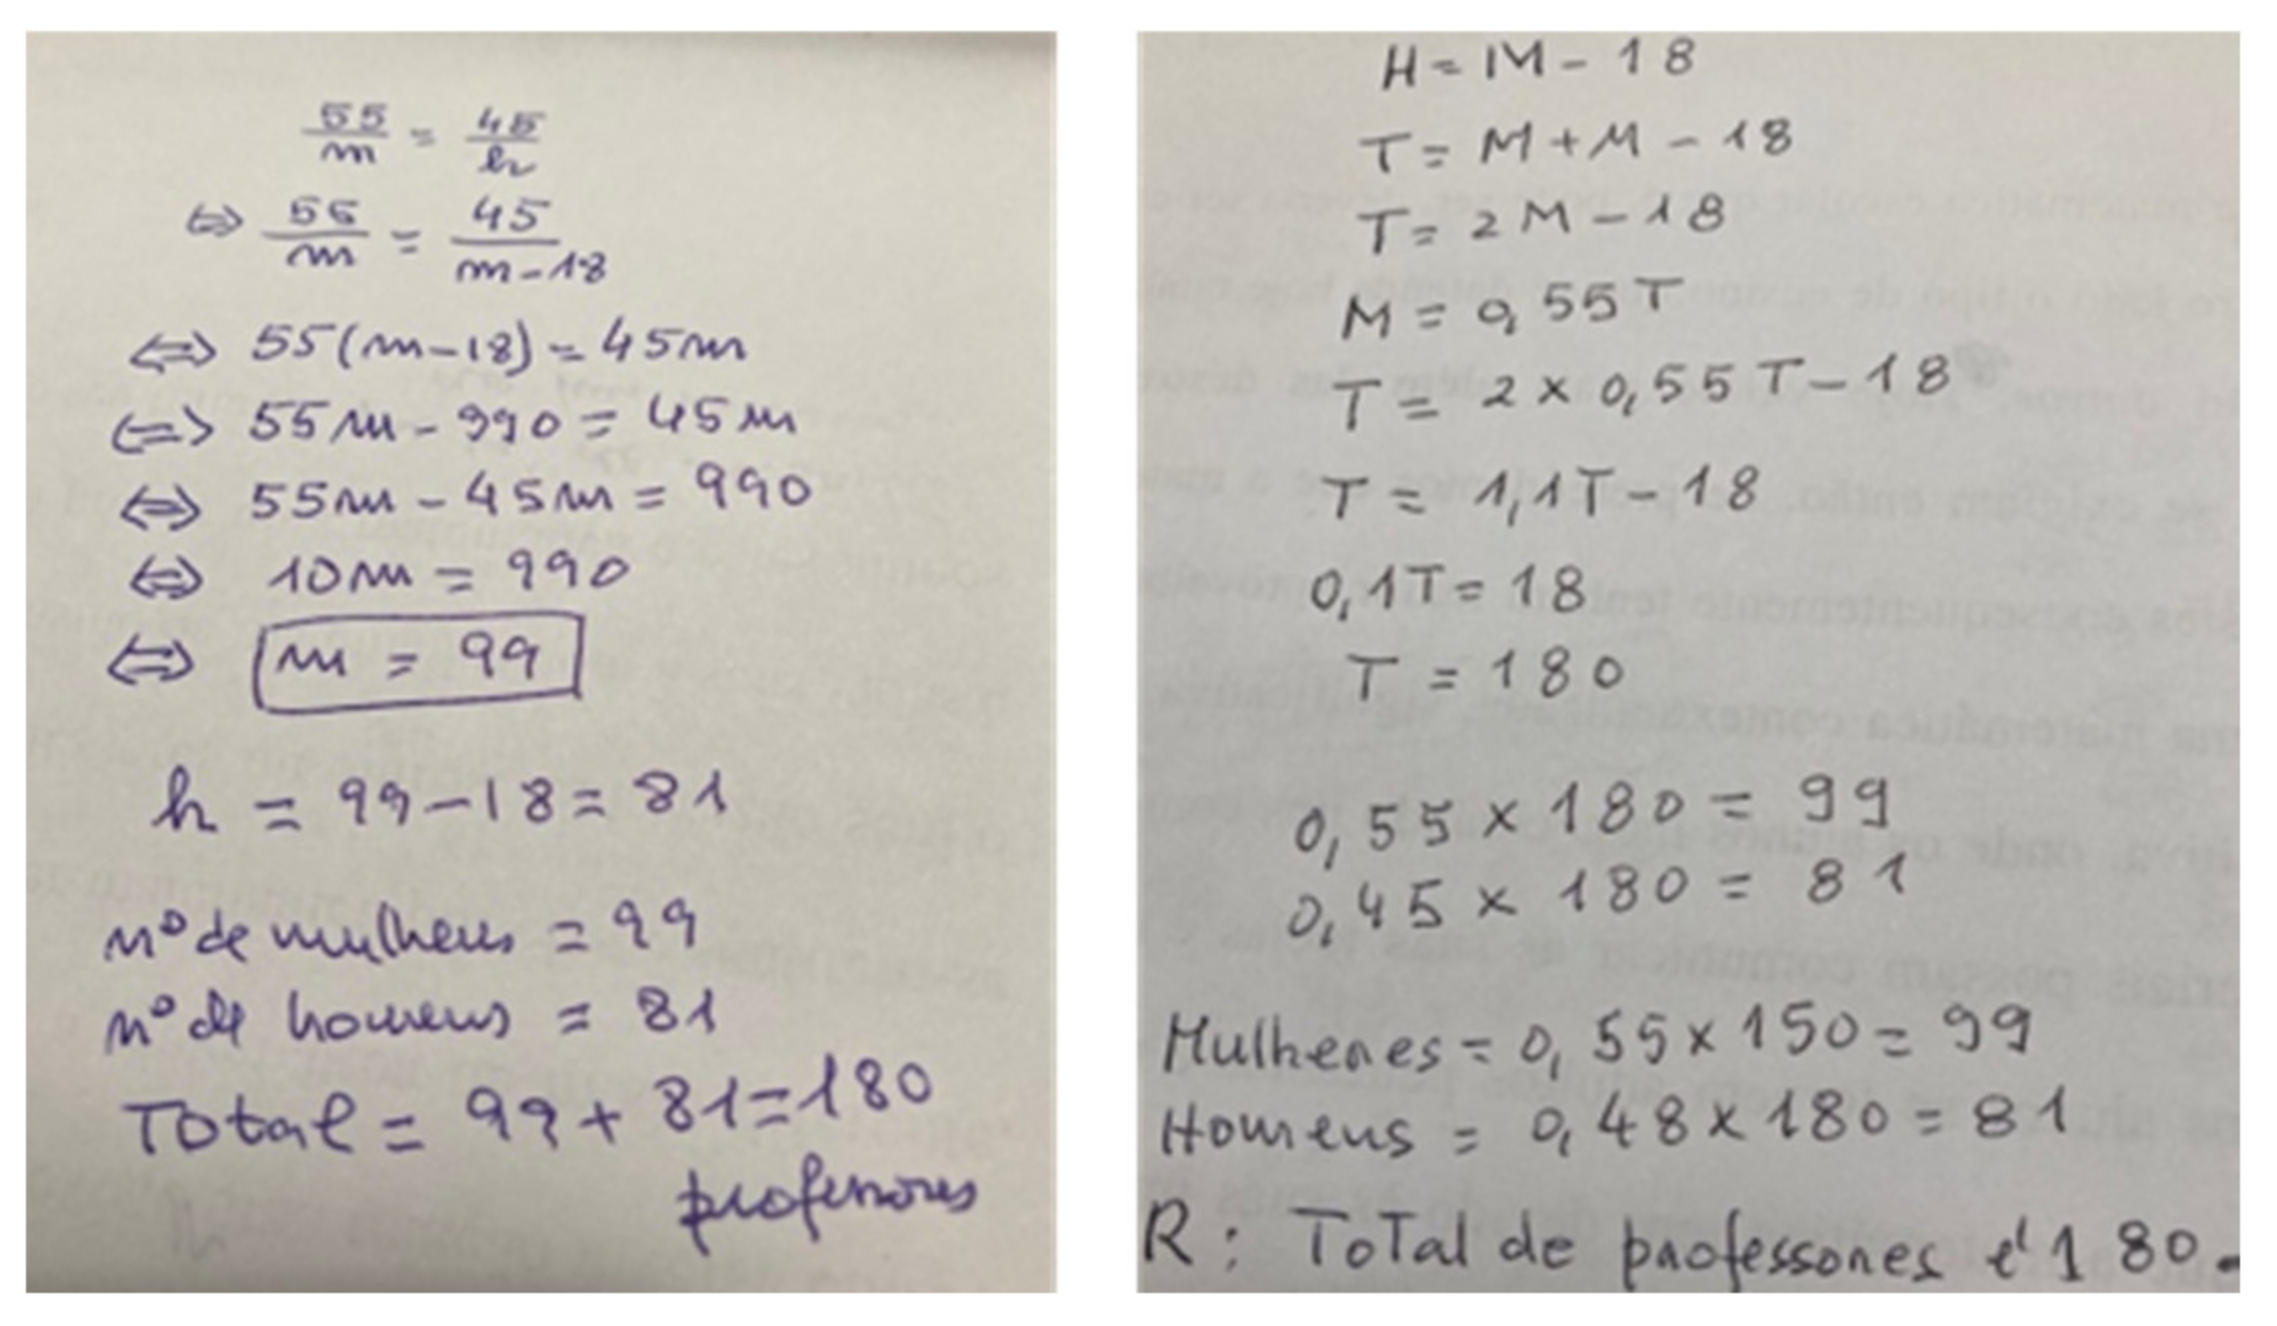 55/m = 45/h
⇔ 55/m = 45/m-18
⇔ 55(m-18) = 45m
⇔ 55m - 990 = 45m
⇔ 55m - 45m = 990
⇔ 10m = 990
⇔ m = 99
h = 99-18 = 81
nº de mulheres = 99
nº de homens = 81
Total = 99 + 81 = 180
professores
H = M - 18
T = M + M - 18
T = 2M - 18
M = 0,55T
T = 2 x 0,55T - 18
T = 1,1T - 18
0,1T = 18
T = 180
0,55 x 180 = 99
0,45 x 180 = 81
Mulheres = 0,55 x 150 = 99
Homens = 0,48 x 180 = 81
R: Total de professores é 180.